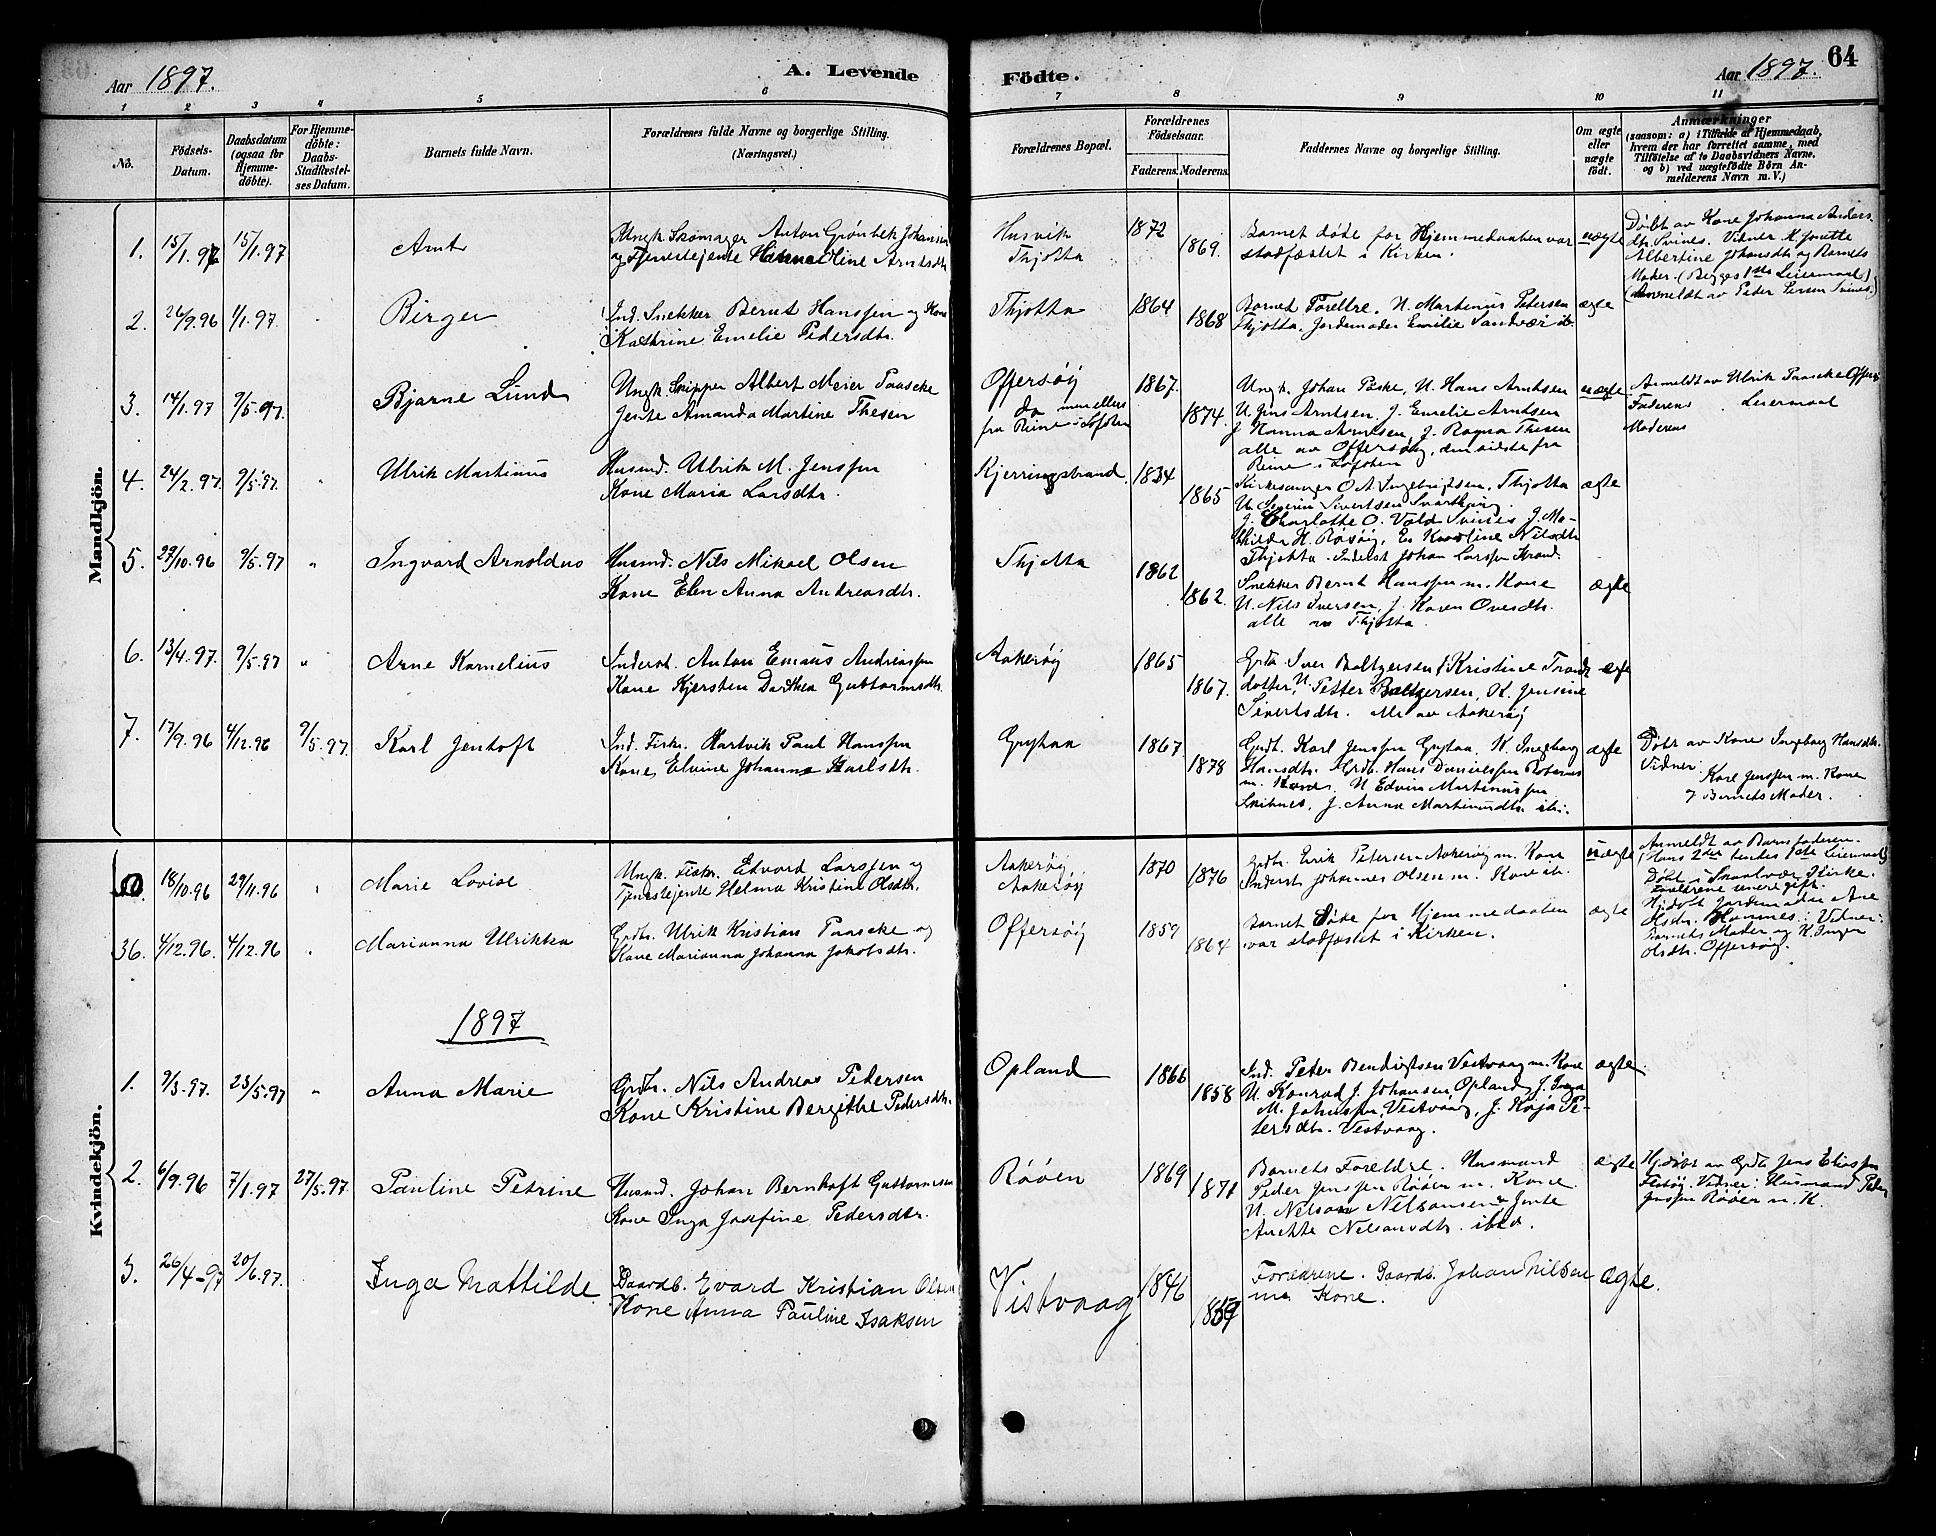 Aar 1897.
A. Levende
Födte.
Aar 1897.
64
1 2 3 4 5 6 7 8 9 10 11
No.
Födsels-Datum.
Daabsdatum (ogsaa for Hjemme-døbte).
For Hjemme-døbte: Daabs-Stadfæstel-ses Datum.
Barnets fulde Navn.
Forældrenes fulde Navne og borgerlige Stilling.
(Næringsvei.)
Forældrenes Bopæl.
Forældrenes Födselsaar.
Faderens. Moderens.
Faddernes Navne og borgerlige Stilling.
Om ægte eller uægte födt.
Anmærkninger
(saasom: a) i Tilfælde af Hjemmedaab, hvem der har forrettet samme, med Tilföielse af to Daabsvidners Navne, og b) ved uægtefödte Börn Anmelderens Navn m. V.)
Mandkjön.
1. 15/1.97 15/1.97 Arnt
Ungk. Skomager Anton Grönbek Johansen
og Tjenestejente Hanna Oline Arntsdtr.
Husvik
Thjotta
1872 1869.
Barnet døde før Hjemmedaaben var
stadfæstet i Kirken.
uægte
Døbt av Kone Johanna Anders
dtr. Svines. Vidner
Albertine Johansdtr og Barnets
Moder. (Begges 1ste Leiermaal)
(Anmeldt av Peder Persen Svines.)
2. 26/9.96 1/1.97 " Birger
Ind. Snekker Bernt Hanssen og Kone
Kathrine Emelie Pedersdtr.
Thjotta
1864 1868
Barnets Foreldre. U. Martinus Petersen
Thjotta. Jordemoder Emilie Sandvær ib.
ægte
3. 14/1.97 9/5.97. Bjarne Lund
Ungk. Skipper Albert Meier Paascke
Jente Amanda Martine Thesen
Offersöy
do men ellers
fra Reine i Lofoten
1867. 1874.
Ungk. Johan Peske, U. Hans Arntsen
U. Jens Arntsen, J. Emelie Arntsen
J. Hanna Arntsen, J. Ragna Thesen
alle av Offersöy, den sidste fra
Reine i Lofoten
uægte.
Anmeldt av Ulrik Paascke Offersöy
Faderens Leiermaal
Moderens
4. 24/2.97. 9/5.97. " Ulrik Martinus
Husmd. Ulrik M. Jenssen
Kone Maria Larsdtr.
Kjerringstrand.
1834 1865
Kirkesanger O. A. Ingebrigtsen, Thjotta
U. Severin Sivertsen
J. Charlotte O. Vold Svines J. Ma-
thilde H. Rösöy, Karoline Nilsdtr
Thjotta. Inderst Johan Larssen
ægte
5. 27/10.96 9/5.97 " Ingvard Arnoldus
Husmd. Nils Mikael Olsen
Kone Elen Anna Andreasdtr.
Thjotta
1862 1862.
Snekker Bernt Hanssen m. Kone
U. Nils Iversen, J. Karen Ovesdtr.
alle av Thjotta.
ægte
6. 13/4.97. 9/5.97 " Arne Kornelius
Inderst. Anton Emaus Andreassen
Kone Kjersten Dorthea Guttormsdtr.
Aakeröy
1865 1867.
Grdb. Iver Baltzersen, Kristine Trands
datter, U. Petter Baltzersen, K. Jensine
Sivertsdtr. Alle av Aakeröy
ægte
7. 17/9.96 4/12.96 9/5.97. Karl Jentoft
Ind. Fisker. Hartvik Paul Hanssen
Kone, Elvine Johanna Karlsdtr.
Grytaa
1867. 1878
Grdb. Karl Jenssen Grytaa, K. Ingeborg
Hansdtr. Grdb. Hans Danielssen
m. Kone. U. Edvin Martinussen
J. Anna Martinusdtr. ib.
ægte
Døbt av Kone Ingeborg Hansdtr.
Vidner:
Karl Jenssen m. Kone
7 Barnets Moder.
Kvindekjön.
18/10.96 29/11.96 " Marie Lovise
Ungk. Fisker. Edvard Larssen og
Tjenestejente Helma Kristine Olsdtr.
Aakeröy
Aakeröy
1870 1876
Grdbr. Erik Petersen Aakeröy m. Kone
Inderst Johannes Olsen m. Kone ib.
uægte
Anmeldt av Barnefaderen.
(Hans 2det hendes 1ste Leiermaal)
Døbt i Skaalvær Kirke.
Foreldrene senere gift.
36. 4/12.96. 4/12.96 " Marianna Ulrikka
Grdbr. Ulrik Kristian Paascke og
Kone Marianna Johanna Jakobsdtr.
Offersöy
1859 1864
Barnet døde før Hjemmedaaben
var stadfæstet i Kirken.
ægte
Hjdøbt Jordemoder Ane
Olsdtr. Hamnes: Vidner:
Barnets Moder og K. Inger
Olsdtr. Offersöy.
1897
1. 9/3.97. 23/5.97 " Anna Marie
Grdbr. Nils Andreas Pedersen
Kone Kristine Bergithe Pedersdtr.
Opland
1866 1858
Ind. Peter Bendigtsen Vestvaag m. Kone
U. Konrad J. Johansen, Opland, J. Inga
M. Johnssen, Vestvaag, J. Kaja Pe-
tersdtr. Vestvaag.
ægte.
2. 6/9.96 7/1.97 27/5.97 Pauline Petrine
Husmd. Johan Bernhoft Guttormsen
Kone Inga Josefine Pedersdtr.
Røöen
1869 1871
Barnets Foreldre. Husmand
Peder Jenssen Røöen m. Kone
U. Nelson Nelsonsen, Jente
Anette Nelsonsdtr. ibd.
ægte
Hjdöbt av Grdb Jens Eliassen
Vidner: Husmand Peder
Jenssen Røöen m. K.
3. 26/4-97 20/6.97. Inga Mathilde.
Gaardb. Evard Kristian Olsen
Kone Anna Pauline Isaksen
Vistvaag
1846
Forældrene. Gaardb. Johan Nilsen
med Kone.
ægte.